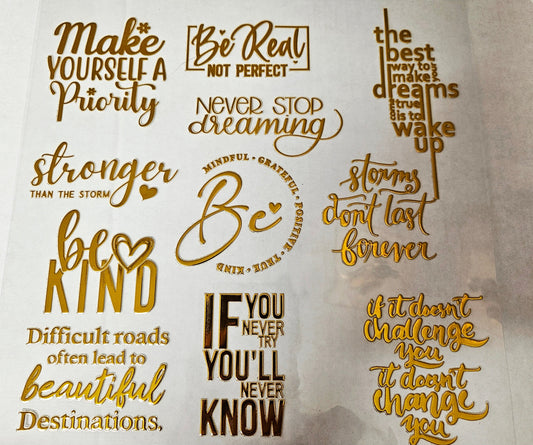 Make
YOURSELF A
Priority
Be Real
NOT PERFECT
the
best
way to
make
dreams
true
is to
wake
up
NEVER STOP
dreaming
stronger
THAN THE STORM
MINDFUL • GRATEFUL • POSITIVE • TRUE • KIND
Be
storms
don't last
forever
be
KIND
Difficult roads
often lead to
beautiful
Destinations.
IF YOU
NEVER
TRY
YOU'LL
NEVER
KNOW
if it doesn't
challenge
you
it doesn't
change
you